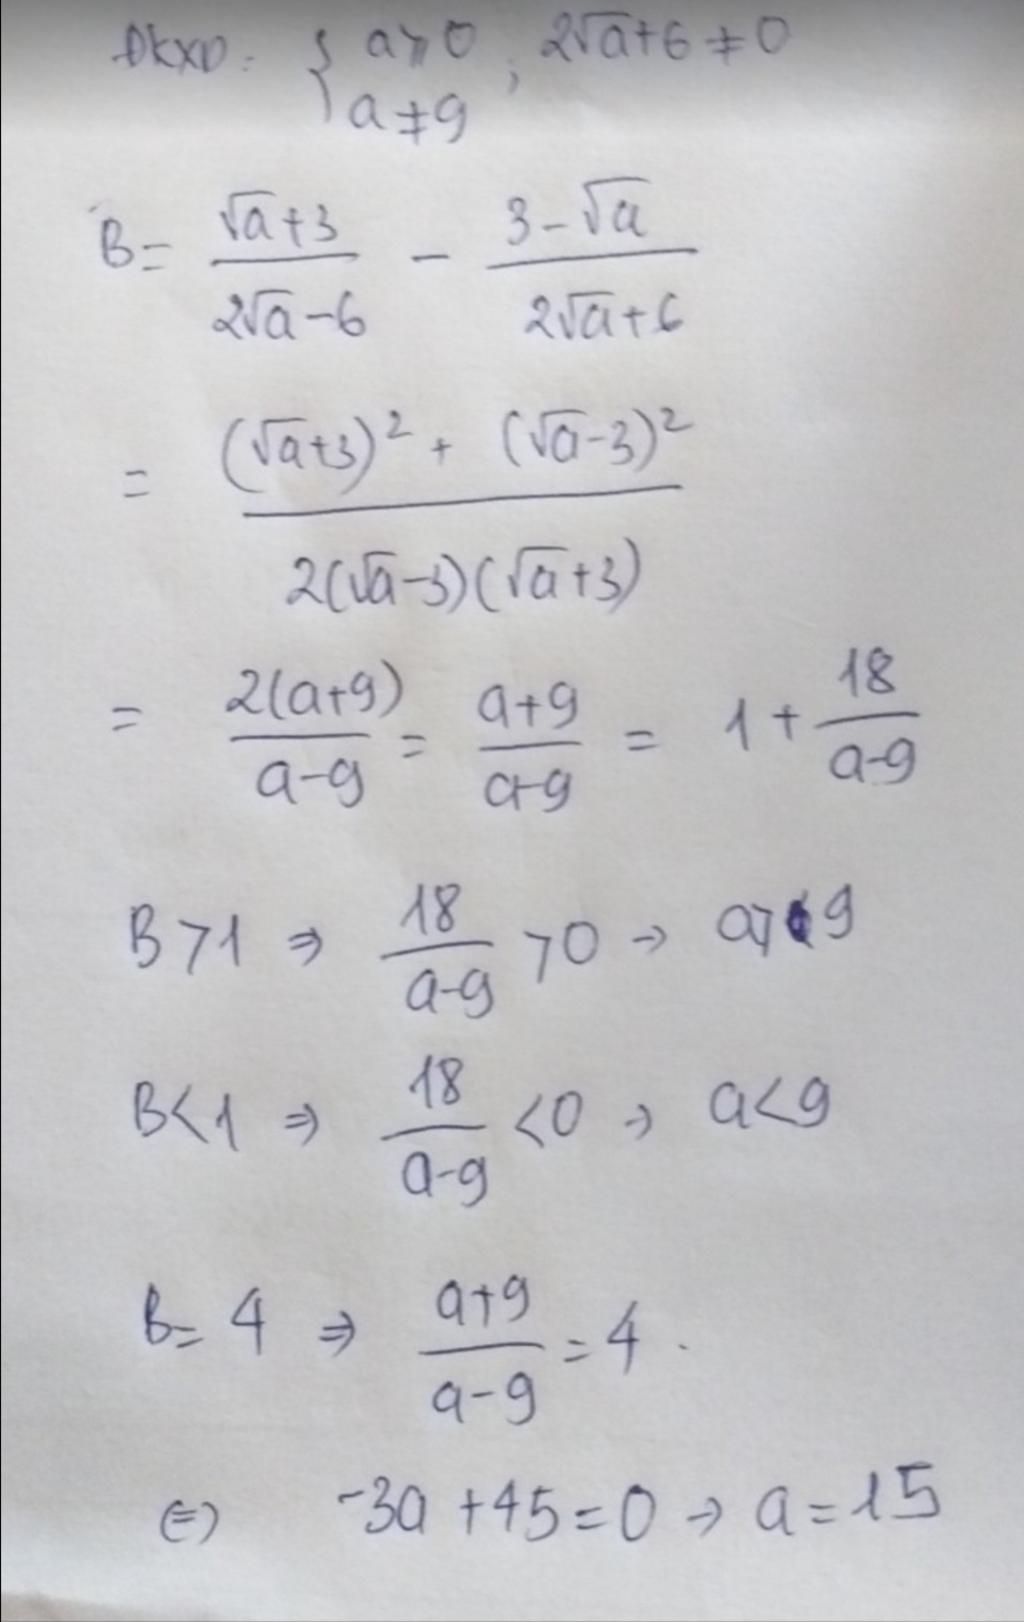 ĐKXĐ: { a ⩾ 0 ; 2√a+6 ≠ 0
a ≠ 9
B = (√a+3)/(2√a-6) - (3-√a)/(2√a+6)
= ((√a+3)² + (√a-3)²)/(2(√a-3)(√a+3))
= 2(a+9)/(a-9) = (a+9)/(a-9) = 1 + 18/(a-9)
B>1 ⇒ 18/(a-9) >0 → a>9
B<1 ⇒ 18/(a-9) <0 → a<9
B= 4 ⇒ (a+9)/(a-9) = 4.
⇔ -3a +45=0 → a=15